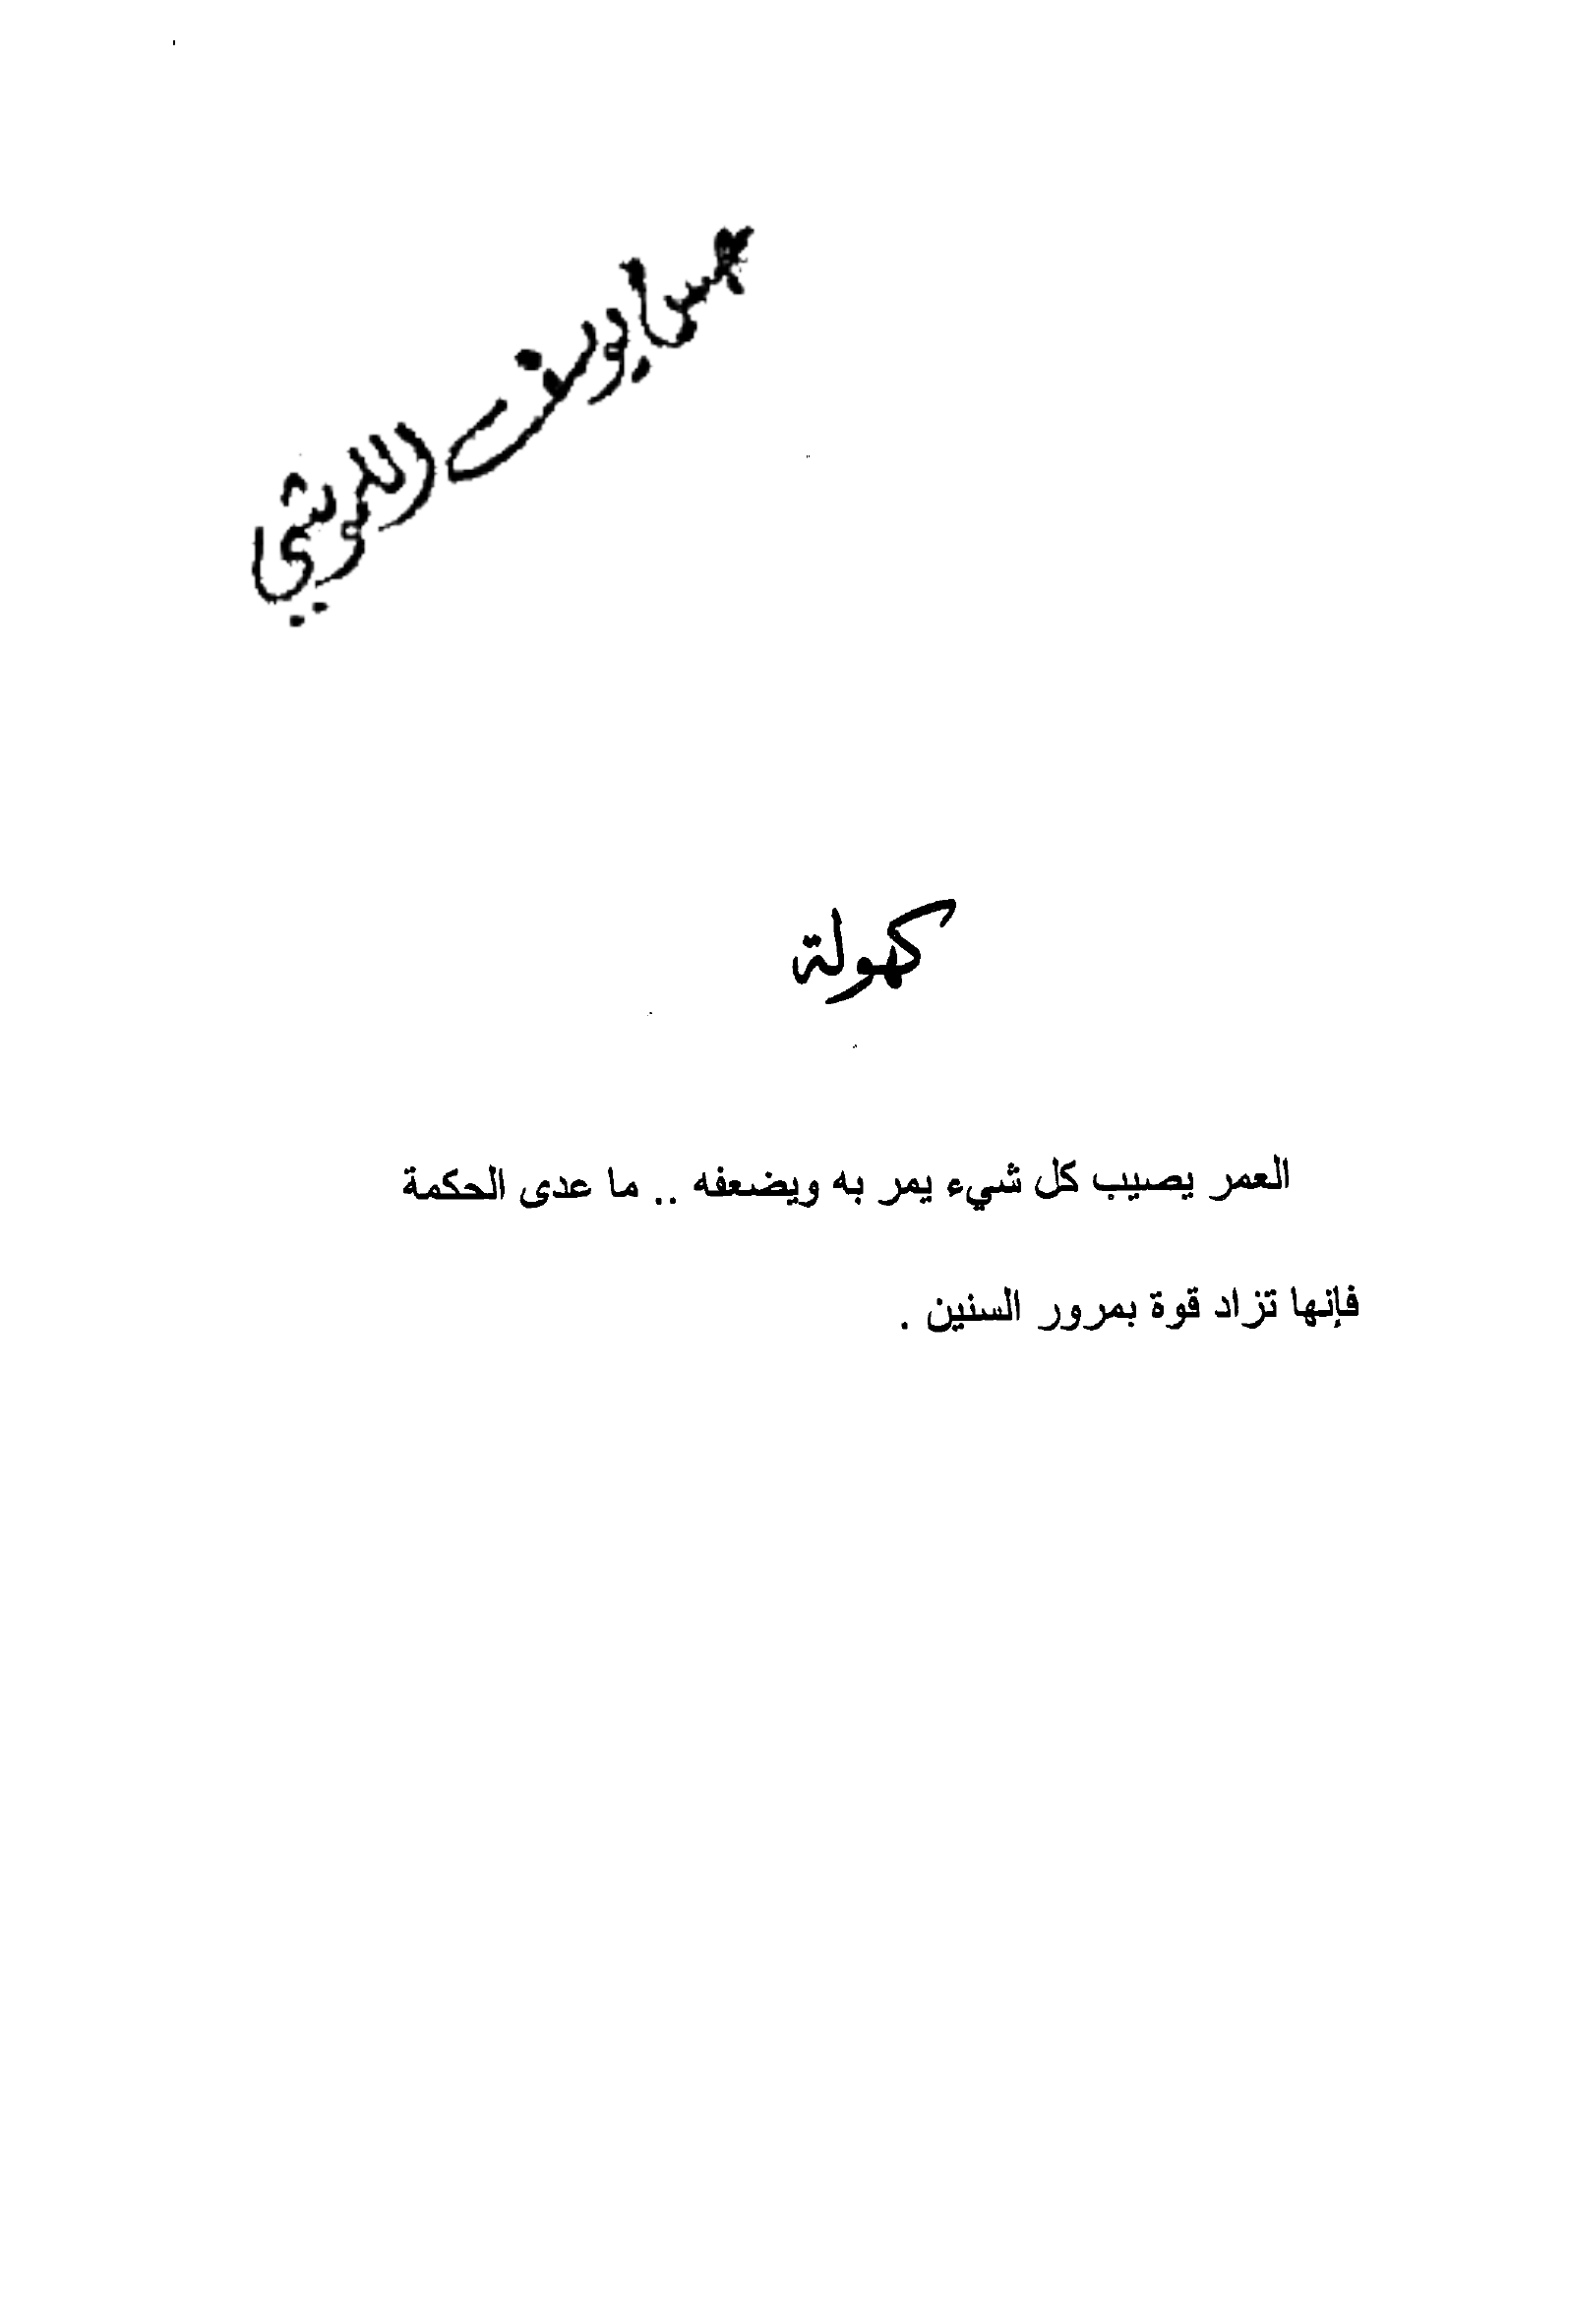 يوسف
كهولة
العمر يصيب كل شيء يمر به ويضعفه .. ما عدى الحكمة
فإنها تزاد قوة بمرور السنين .